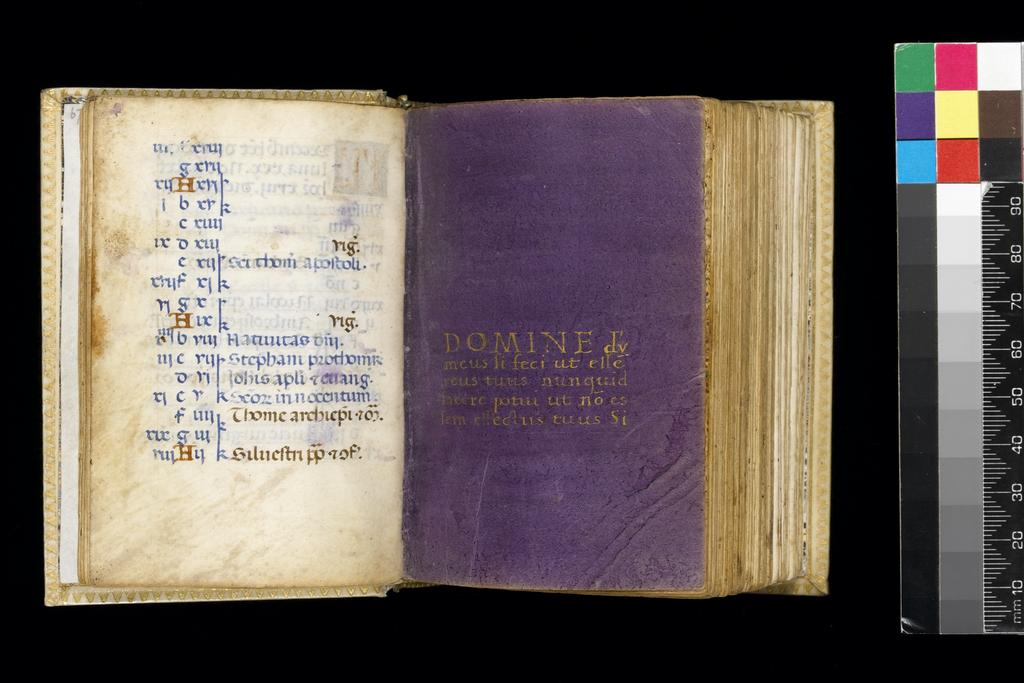 g xvij
xvj
j b xv
c xiiij
ix D xiij vig̃.
e xij Sc̃i thom̃ apostoli.
xvij f xj
vj g x
A ix vig̃.
b viij Natiuitas dñi.
iij c vij Stephani prothom̃
D vj Johĩs apli ⁊ euang.
xj e v Scoꝝ innocentum
f iiij Thome archiep̃i ⁊ m̃.
xix g iij
viij A ij Siluestri pp̃ ⁊ ɔf̃.
DOMINE
meus si feci ut essẽ
reus tuus nunquid
potui ut nõ es
sem effectus tuus Si
90
80
70
60
50
40
30
20
mm 10